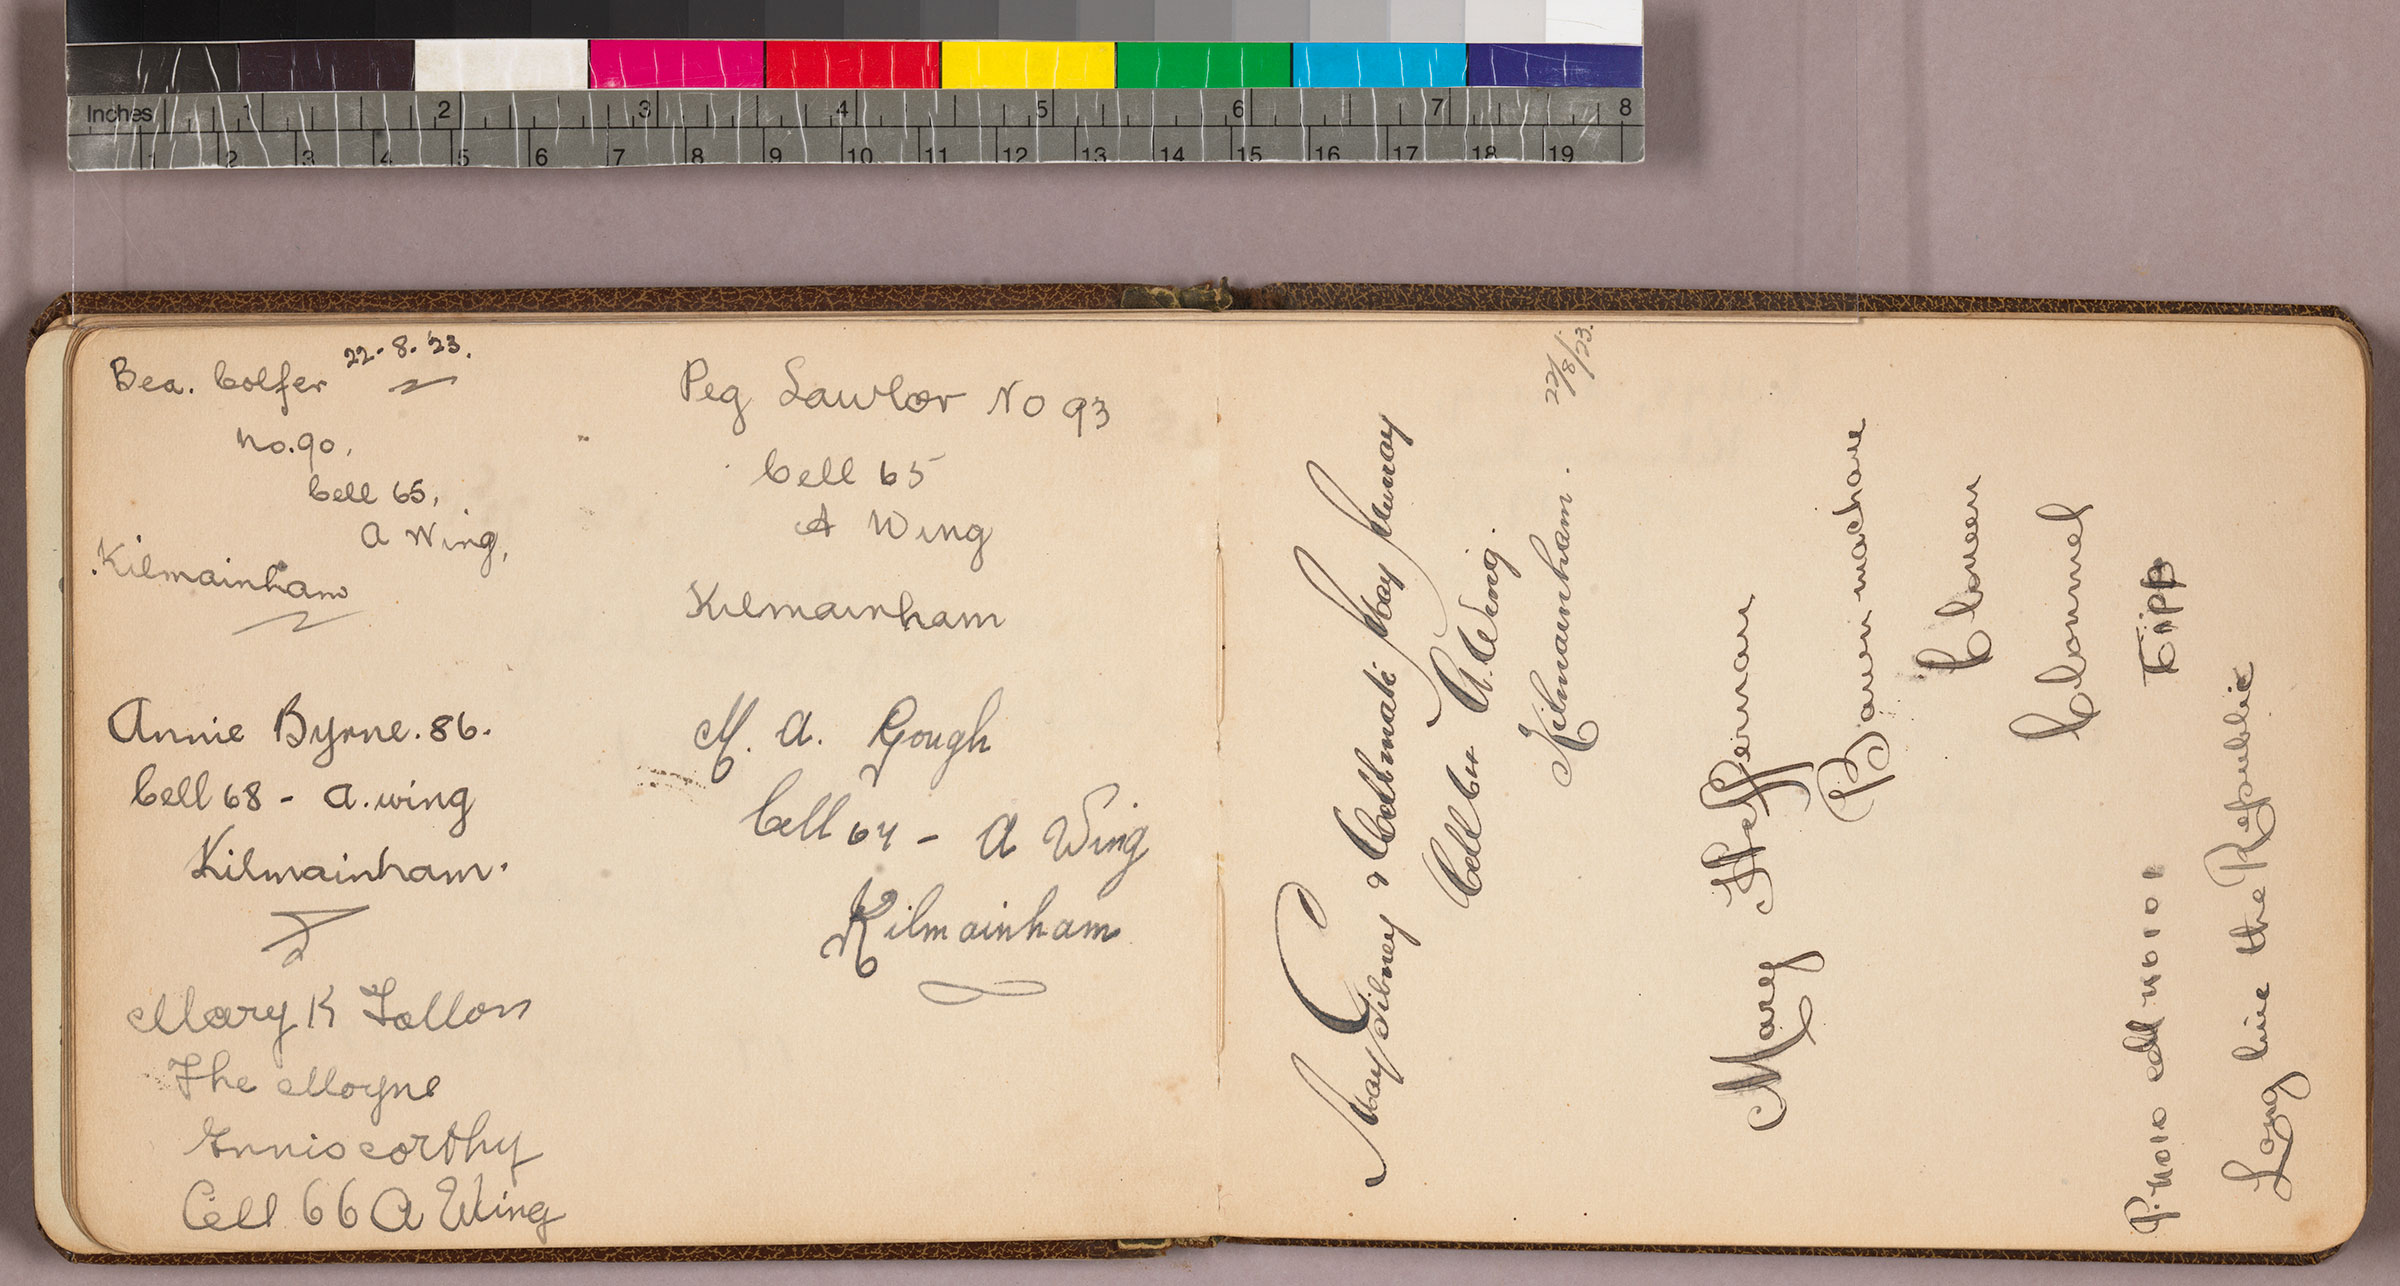 Inches 1 2 3 4 5 6 7 8
1 2 3 4 5 6 7 8 9 10 11 12 13 14 15 16 17 18 19
Bea. Colfer 22-8-'23.
No.90,
Cell 65,
A Wing,
Kilmainham
Annie Byrne. 86.
Cell 68 - A. wing
Kilmainham.
Mary K Fallon
The Moyne
Enniscorthy
Cell 66 A Wing
Peg Lawlor No 93
Cell 65
A Wing
Kilmainham
M. A. Gough
Cell 64 - A Wing
Kilmainham
May Gibney & Cellmate May Murray
Cell 64 A. Wing.
Kilmainham. 22/8/23.
Mary Heffernan
Bawnmachane
Cloneen
Clonmel
Tipp
Long live the Republic